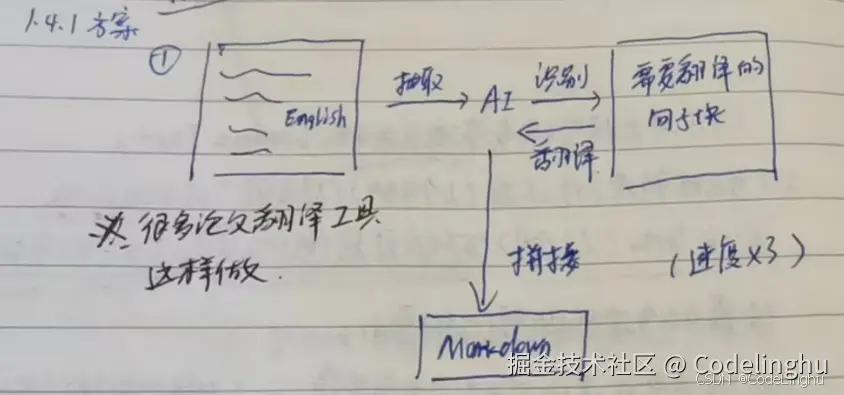 1.4.1 方案
①
English
抽取
AI
识别
翻译
需要翻译的
句子块
※ 很多论文翻译工具
这样做.
拼接
(进度×3)
Markdown
掘金技术社区 @ Codelinghu
CSDN @CodeLinghu